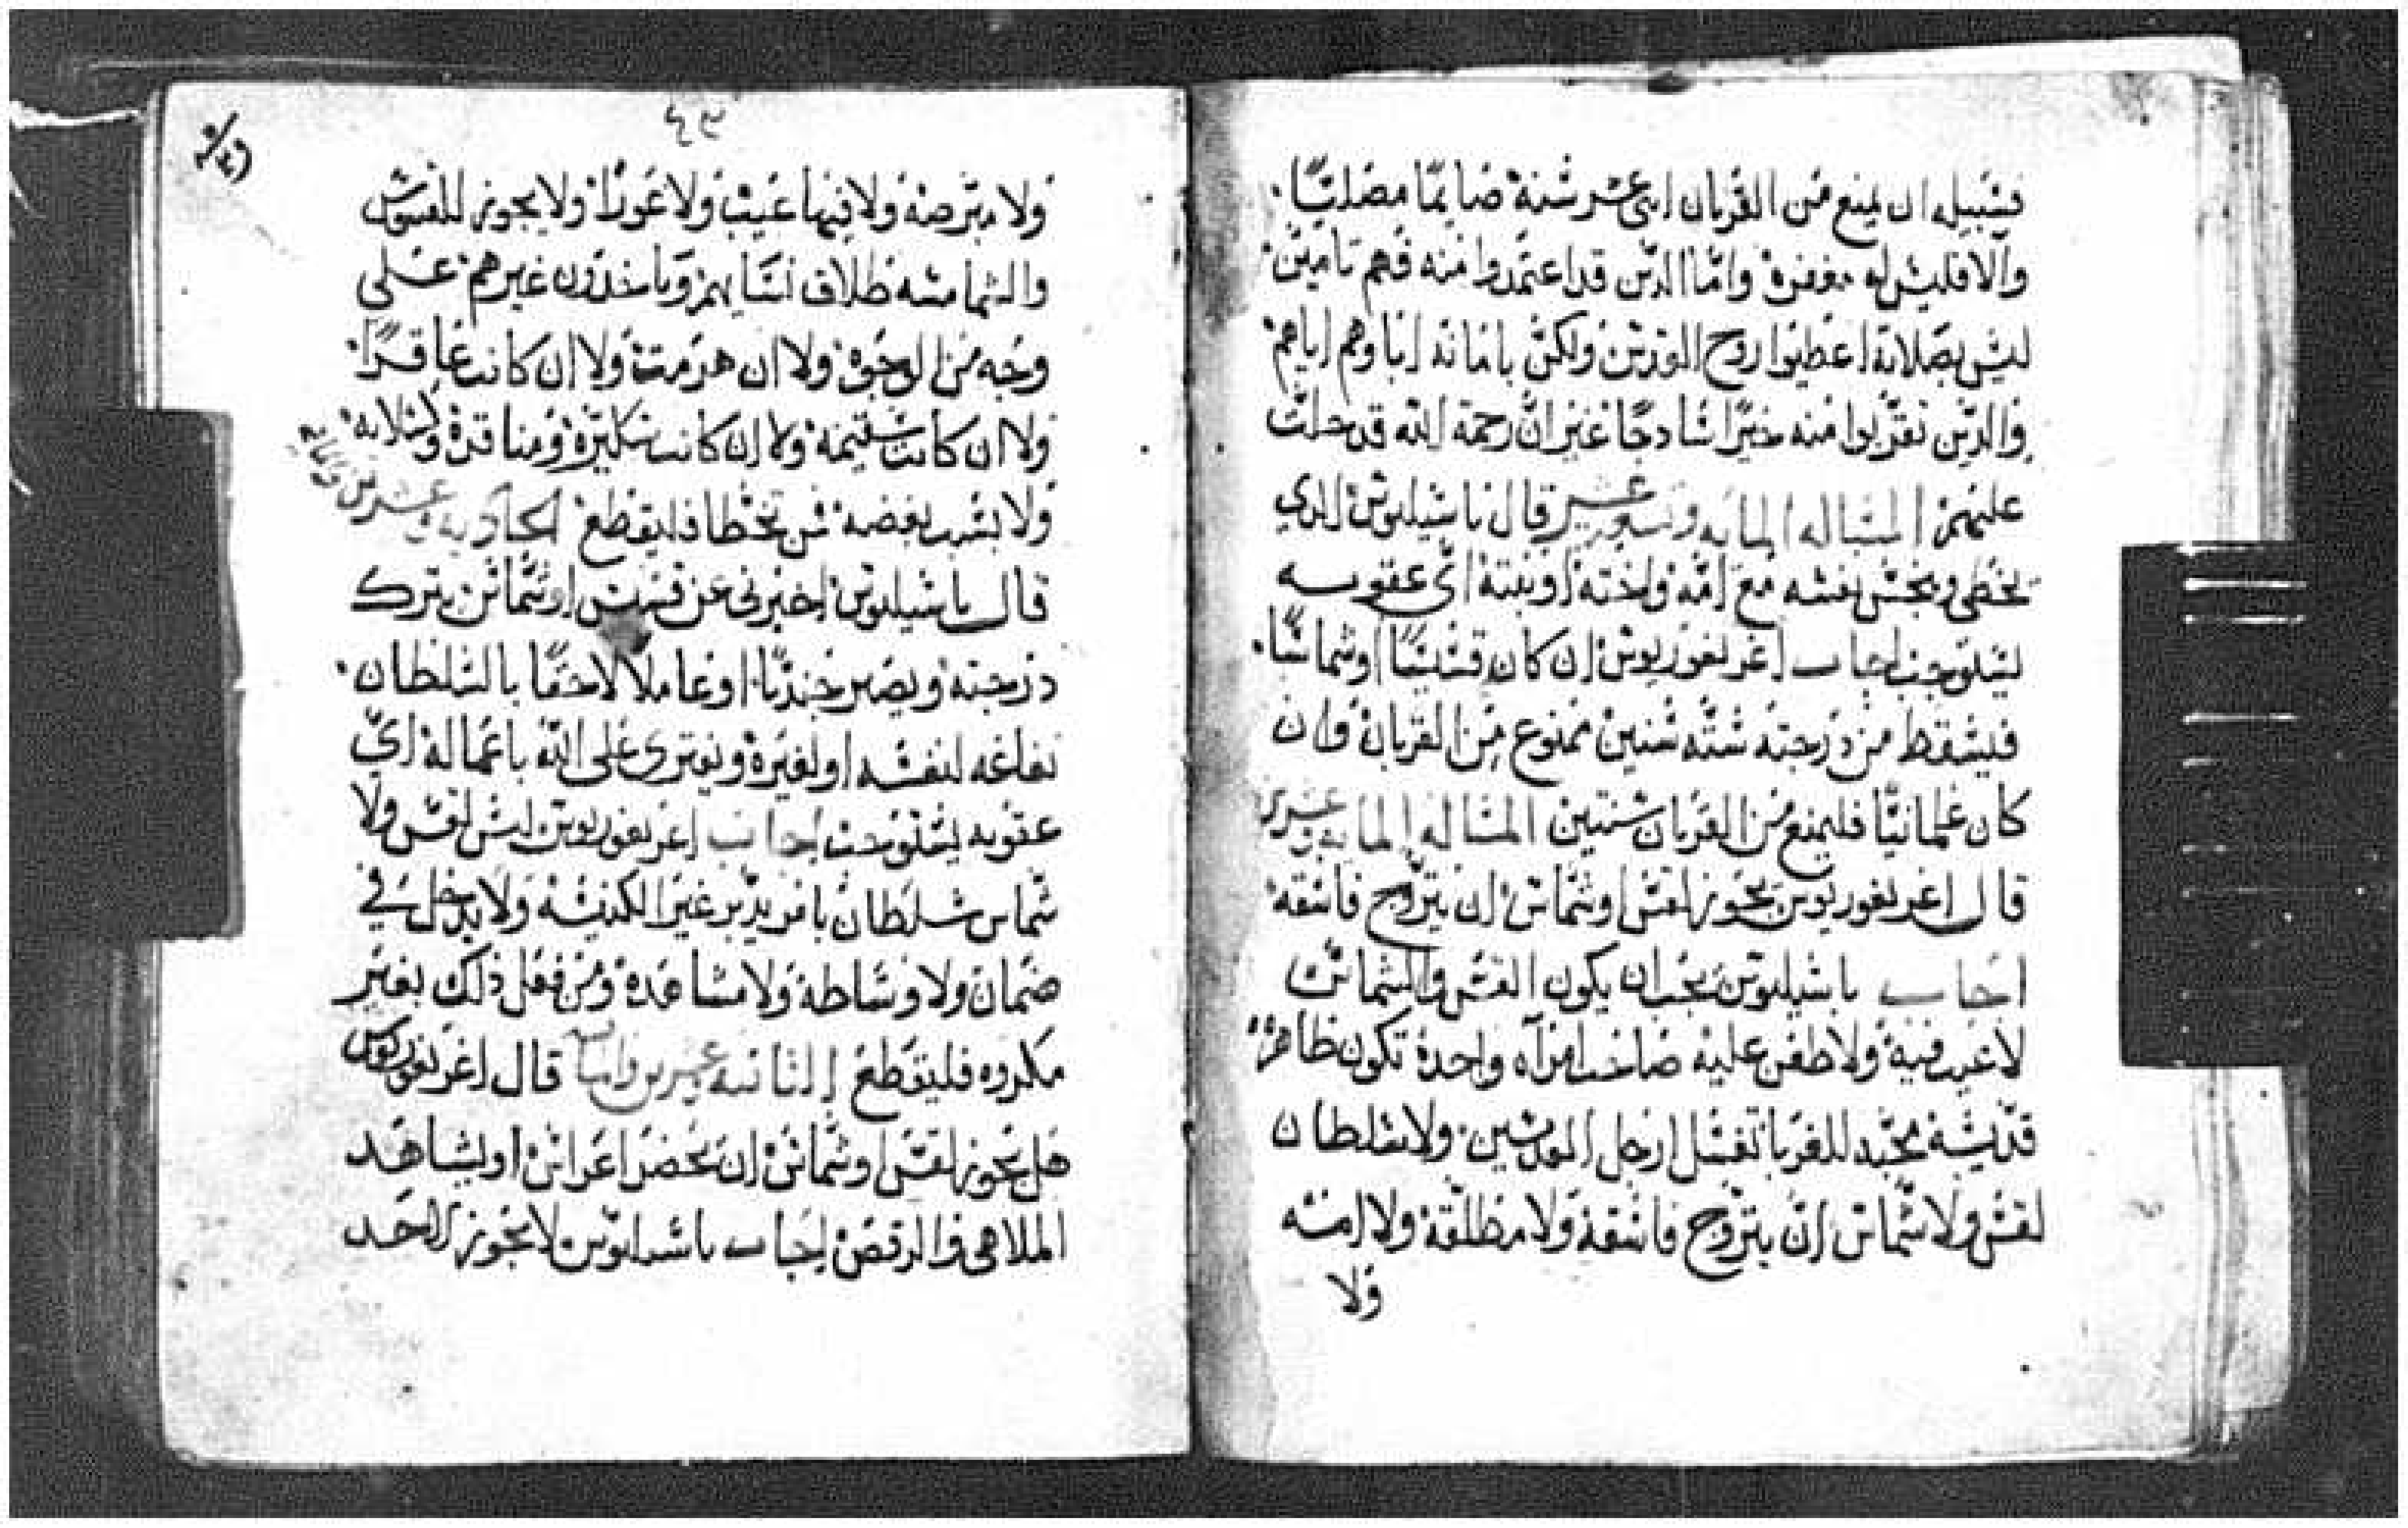 فسبيله ان يمنع من القربان اثنى عشر سنة صايمًا مصليًا
والا فليس له مغفرة واما الدين قد اعتمدوا منه فهم تامين
ليس بصلاته اعطيوا روح القدس ولكن بامانة اباوهم اياهم
والدين تقربوا منه خبزًا سادجًا غير ان رحمة الله قد حلت
عليهم المساله المايه وتسعة عشر قال باسيليوس الدي
يخطي وينجس نفسه مع امه واخته او بنته اي عقوبه
يستوجب اجاب اغريغوريوس ان كان قسيسًا او شماسًا
فليسقط من درجته سته سنين ممنوع من القربان وان
كان علمانيًا فليمنع من القربان سنتين المساله المايه وعشرين
قال اغريغوريوس يجوز لقس او شماس ان يتزوج فاسقه
اجاب باسيليوس يجب ان يكون القس والشماس
لا عيب فيه ولا طعن عليه صاحب امراه واحدة تكون طاهرة
قديسة محبه للغربا تغسل ارجل القديسين ولا سلطان
لقس ولا شماس ان يتزوج فاسقة ولا مطلقة ولا امه
ولا
٤٣
ولا مبرصة ولا فيها عيب ولا عورًا ولا يجوز للقسوس
والشمامسه طلاق نسايهم وياخدون غيرهم على
وجه من الوجوة ولا ان هرمت ولا ان كانت عاقرًا
ولا ان كانت سقيمة ولا ان كانت سكيرة ومناقرة
ولا بسبب بغضه فمن تخطا فليقطع الحاديه وعشرين والمايه
قال باسيليوس اخبرني عن قسيس او شماس يترك
درجته ويصير جنديًا او عاملا لاحقًا بالسلطان
لنفسه او لغيرة ويفتري على الله باعماله اي
عقوبه يستوجب اجاب اغريغوريوس ليس لقس ولا
شماس سلطان بامر يدبر غير الكنيسه ولا يدخل في
ضمان ولا وساطة ولا مساعدة ومن فعل ذلك بغير
مكروه فليقطع التانيه عشرين والمايه قال اغريغوريوس
هل يجوز لقس او شماس ان يحضر اعراس او يشاهد
الملاهي والرقص اجاب باسيليوس لا يجوز لاحد